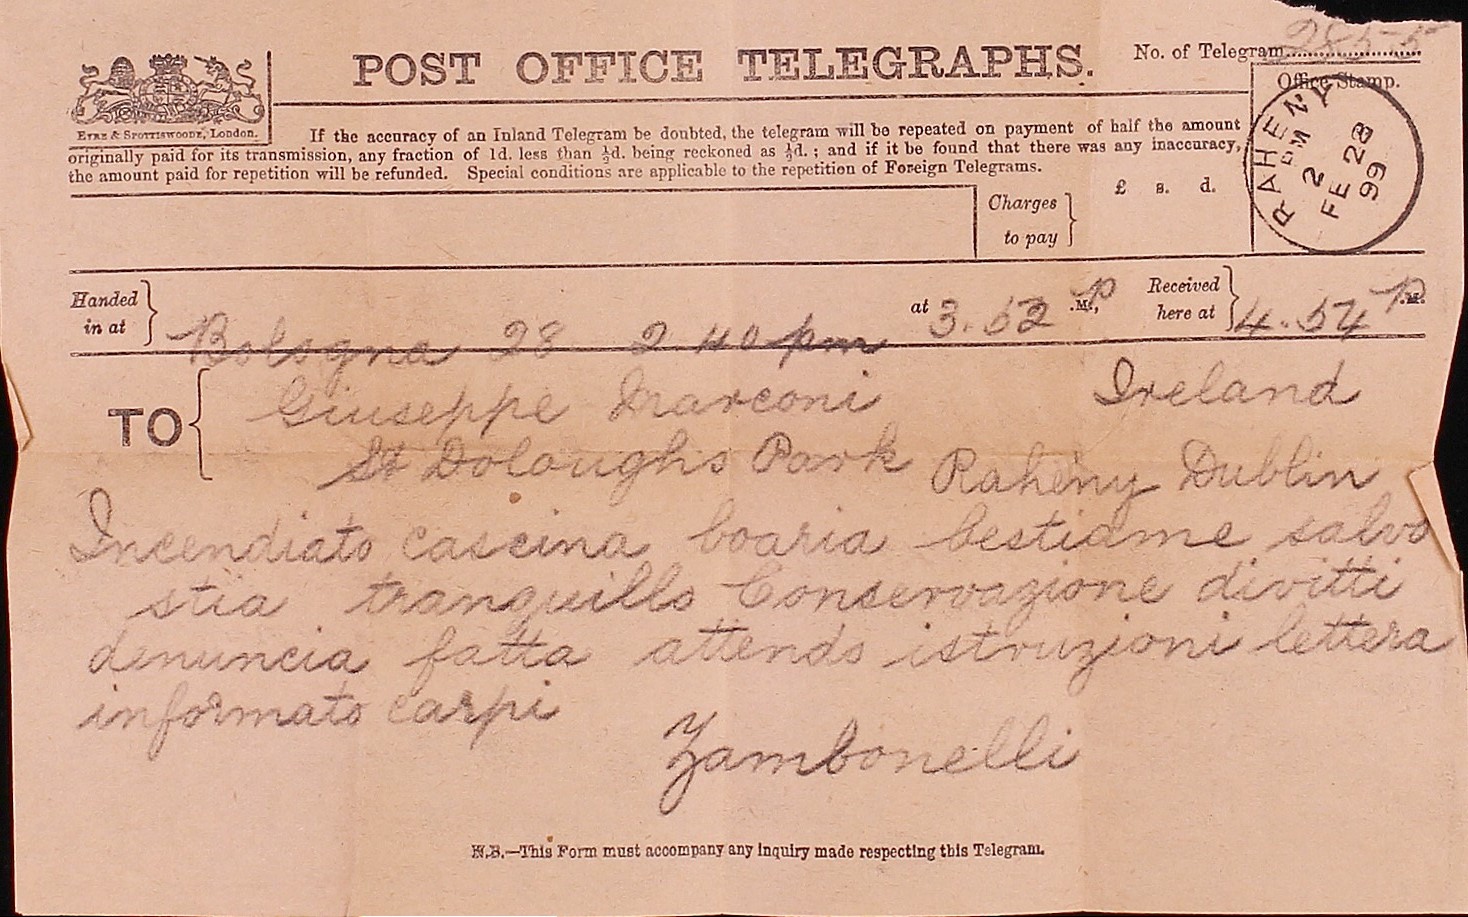 POST OFFICE TELEGRAPHS.
No. of Telegram
Office Stamp.
EYRE & SPOTTISWOODE, London.
If the accuracy of an Inland Telegram be doubted, the telegram will be repeated on payment of half the amount
originally paid for its transmission, any fraction of 1d. less than ½d. being reckoned as ½d.; and if it be found that there was any inaccuracy,
the amount paid for repetition will be refunded. Special conditions are applicable to the repetition of Foreign Telegrams.
RAHENY
2 PM
FE 28
99
Charges to pay } £ s. d.
Handed in at } Bologna 28 2.40 pm at 3.52 P.M., Received here at } 4.54 P.M.
TO { Giuseppe Marconi Ireland
St Doloughs Park Raheny Dublin
Incendiato cascina boaria bestiame salvo
stia tranquillo Conservazione divitti
denuncia fatta attendo istruzioni lettera
informato carpi
Zambonelli
N.B.—This Form must accompany any inquiry made respecting this Telegram.